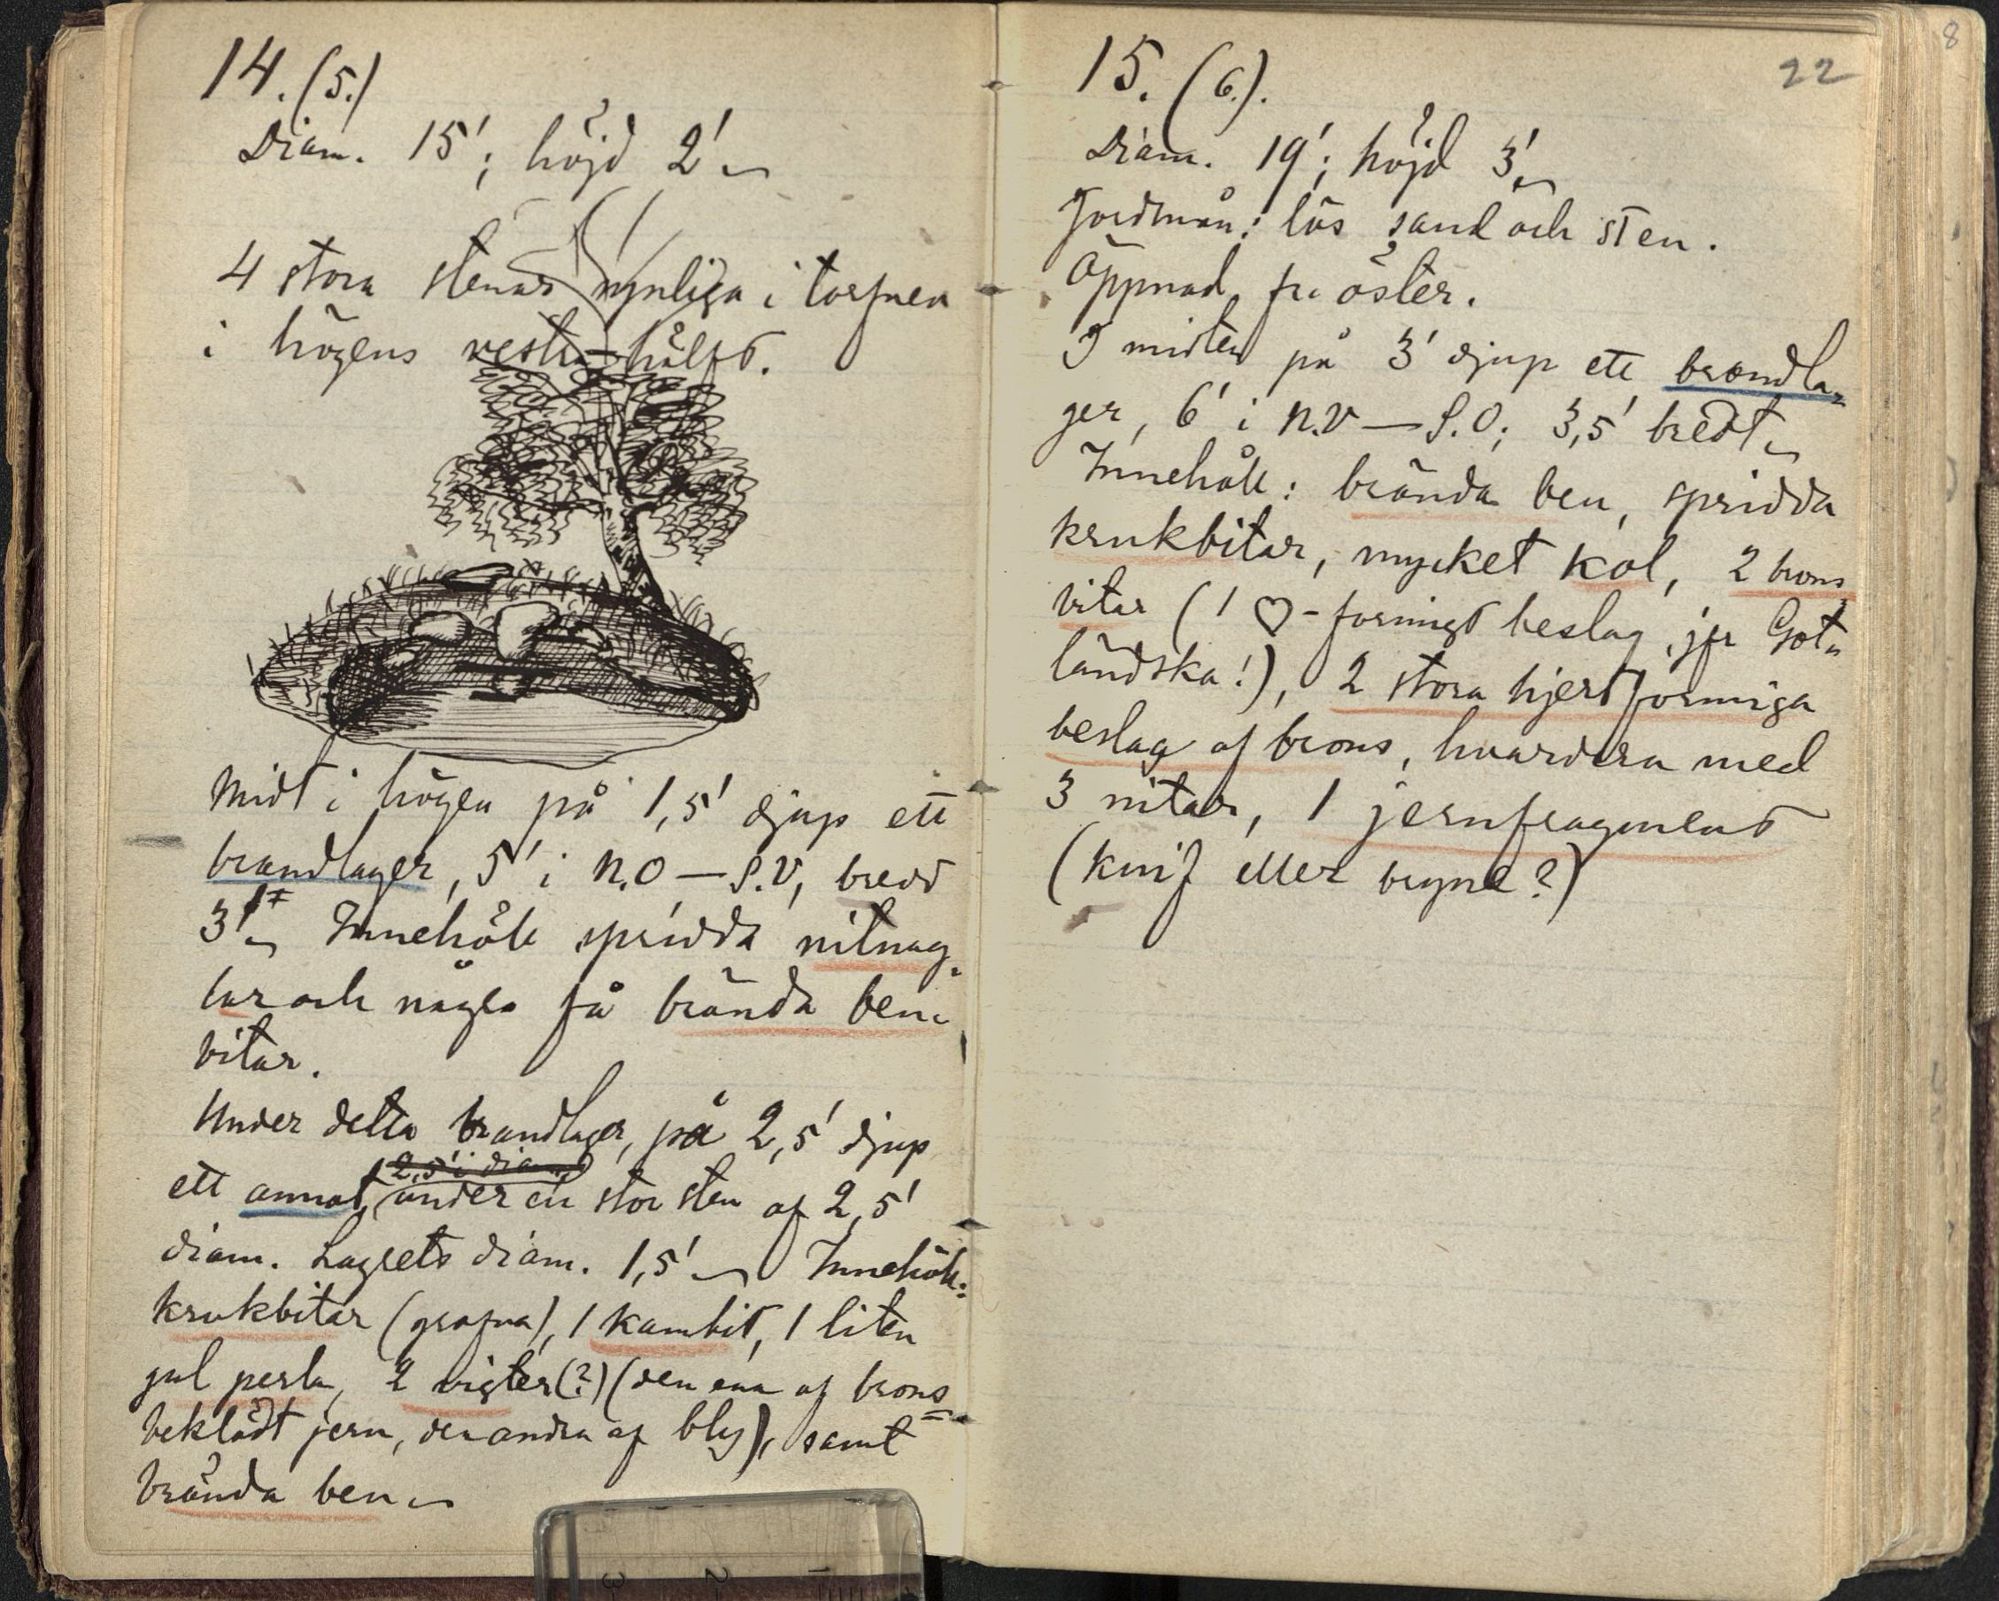 14. (5.)
Diam. 15'; höjd 2'
4 stora stenar synliga i torfven
i högens vestra hälft.
Midt i högen på 1,5' djup ett
brandlager, 5' i N.O — S.V, bredd
3'. Innehöll spridda nitnag-
lar och några få brända ben-
bitar.
Under detta brandlager, på 2,5' djup
2,5' i diam.
ett annat, under en stor sten af 2,5'
diam. Lagrets diam. 1,5' Innehöll:
krukbitar (grofva), 1 kambit, 1 liten
gul perla, 2 vigter (?) (den ena af brons-
beklädt jern, den andra af bly), samt
brända ben
15. (6.).
22
8
Diam. 19'; höjd 3'
Jordmån: lös sand och sten.
Öppnad fr. öster.
I midten på 3' djup ett brandla-
ger, 6' i N.V — S.O; 3,5' bredt
Innehöll: brända ben, spridda
krukbitar, mycket kol, 2 brons
bitar (1 ♡-formigt beslag, jfr Got-
ländska!), 2 stora hjertformiga
beslag af brons, hvardera med
3 nitar, 1 jernfragment
(knif eller bryne?)